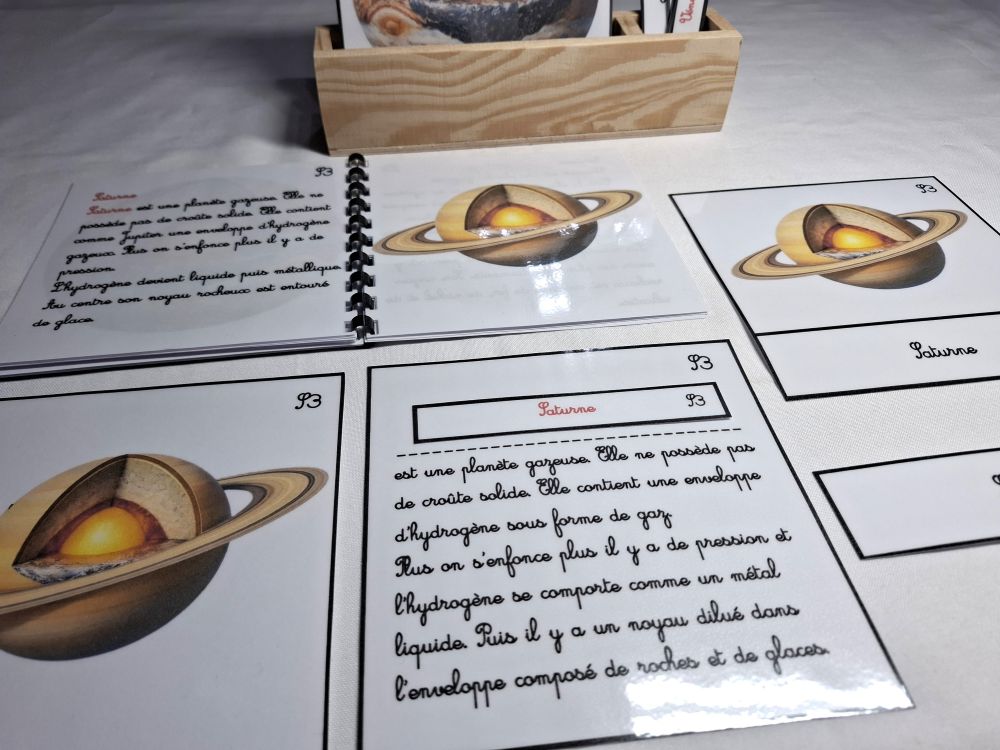 Véne
S3
Saturne
Saturne est une planète gazeuse. Elle ne
possède pas de croûte solide. Elle contient
comme Jupiter une enveloppe d'hydrogène
gazeux. Plus on s'enfonce plus il y a de
pression.
L'hydrogène devient liquide puis métallique.
Au centre son noyau rocheux est entouré
de glace.
S3
Saturne
S3
S3
Saturne S3
est une planète gazeuse. Elle ne possède pas
de croûte solide. Elle contient une enveloppe
d'hydrogène sous forme de gaz.
Plus on s'enfonce plus il y a de pression et
l'hydrogène se comporte comme un métal
liquide. Puis il y a un noyau dilué dans
l'enveloppe composé de roches et de glaces.